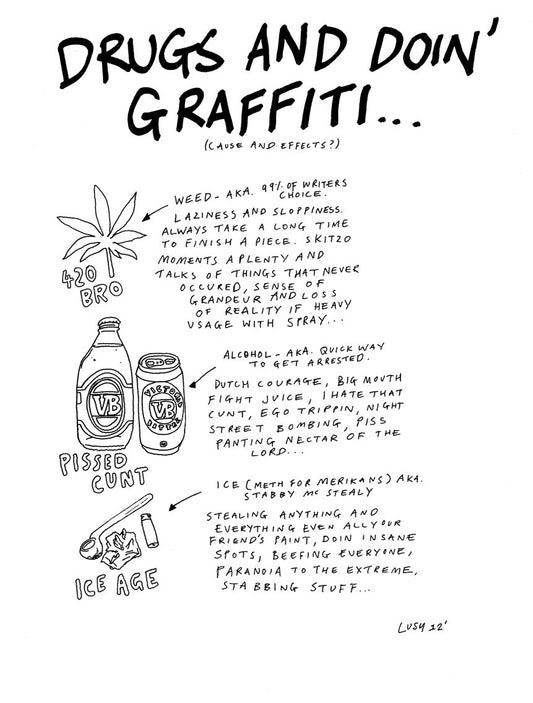 DRUGS AND DOIN'
GRAFFITI...
(CAUSE AND EFFECTS?)
WEED - AKA. 99% OF WRITERS
CHOICE.
LAZINESS AND SLOPPINESS.
ALWAYS TAKE A LONG TIME
TO FINISH A PIECE. SKITZO
MOMENTS APLENTY AND
TALKS OF THINGS THAT NEVER
OCCURED, SENSE OF
GRANDEUR AND LOSS
OF REALITY IF HEAVY
USAGE WITH SPRAY...
420
BRO
ALCOHOL - AKA. QUICK WAY
TO GET ARRESTED.
DUTCH COURAGE, BIG MOUTH
FIGHT JUICE, I HATE THAT
CUNT, EGO TRIPPIN, NIGHT
STREET BOMBING, PISS
PANTING NECTAR OF THE
LORD...
VB
VICTORIA
VB
BITTER
PISSED
CUNT
ICE (METH FOR MERIKANS) AKA.
STABBY MC STEALY
STEALING ANYTHING AND
EVERYTHING EVEN ALL YOUR
FRIEND'S PAINT, DOIN INSANE
SPOTS, BEEFING EVERYONE,
PARANOIA TO THE EXTREME,
STABBING STUFF...
ICE AGE
LUSH 12'